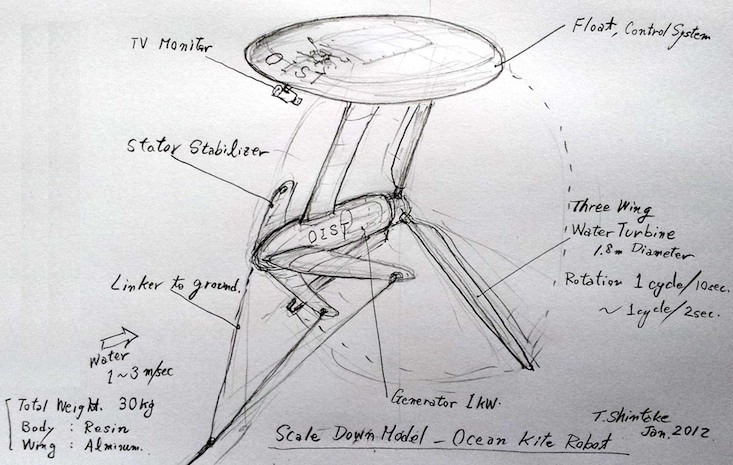 TV Monitor
OIST
Float, Control System
Stator Stabilizer
OIST
Three Wing
Water Turbine
1.8m Diameter
Rotation 1 cycle/10sec.
~ 1 cycle/2sec.
Linker to ground.
Water
1~3 m/sec
Generator 1kW.
Total Weight. 30kg
Body : Resin
Wing : Alminum.
Scale Down Model - Ocean Kite Robot
T. Shintake
Jan. 2012